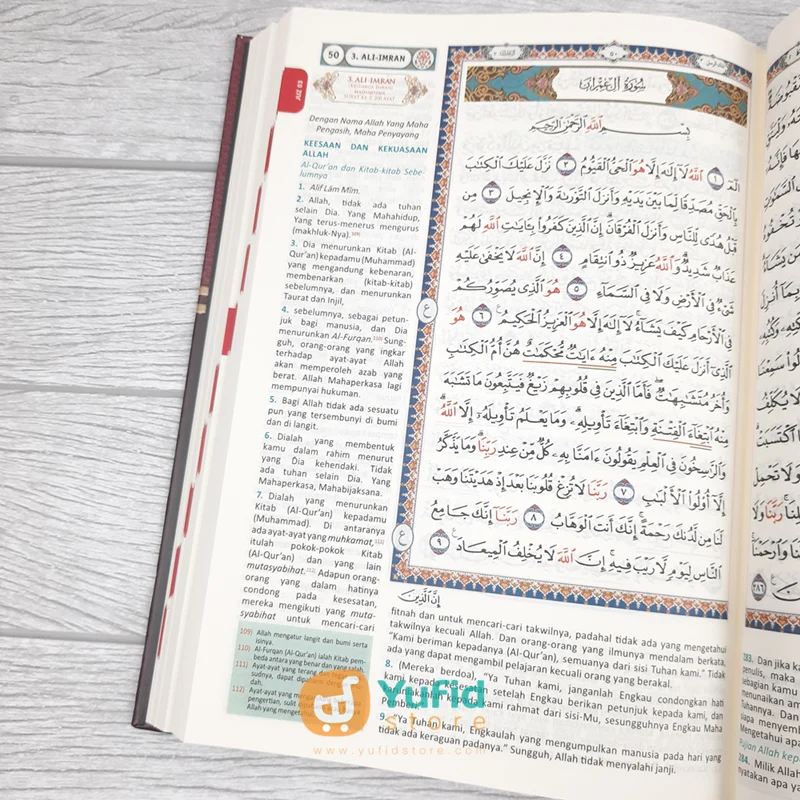 50 3. ALI-IMRAN
JUZ 03
3. ALI-IMRAN
Dengan Nama Allah Yang Maha
Pengasih, Maha Penyayang
KEESAAN DAN KEKUASAAN
ALLAH
Al-Qur'an dan Kitab-kitab Sebe-
lumnya
1. Alif Lām Mīm.
2. Allah, tidak ada tuhan
selain Dia. Yang Mahahidup,
Yang terus-menerus mengurus
(makhluk-Nya).
3. Dia menurunkan Kitab (Al-
Qur'an) kepadamu (Muhammad)
yang mengandung kebenaran,
membenarkan (kitab-kitab)
sebelumnya, dan menurunkan
Taurat dan Injil,
4. sebelumnya, sebagai petun-
juk bagi manusia, dan Dia
menurunkan Al-Furqan. Sung-
guh, orang-orang yang ingkar
terhadap ayat-ayat Allah
akan memperoleh azab yang
berat. Allah Mahaperkasa lagi
mempunyai hukuman.
5. Bagi Allah tidak ada sesuatu
pun yang tersembunyi di bumi
dan di langit.
6. Dialah yang membentuk
kamu dalam rahim menurut
yang Dia kehendaki. Tidak
ada tuhan selain Dia. Yang
Mahaperkasa, Mahabijaksana.
7. Dialah yang menurunkan
Kitab (Al-Qur'an) kepadamu
(Muhammad). Di antaranya
ada ayat-ayat yang muhkamat,
itulah pokok-pokok Kitab
(Al-Qur'an) dan yang lain
mutasyabihat. Adapun orang-
orang yang dalam hatinya
condong pada kesesatan,
mereka mengikuti yang muta-
syabihat untuk mencari-cari
109) Allah mengatur langit dan bumi serta
isinya.
110) Al-Furqan (Al-Qur'an) ialah Kitab pem-
beda antara yang benar dan yang salah.
111) Ayat-ayat yang terang dan tegas
112) Ayat-ayat yang
سُورَةُ آلِ عِمْرَانَ
بِسْمِ اللَّهِ الرَّحْمَٰنِ الرَّحِيمِ
الٓمّٓ ١ اللَّهُ لَآ إِلَٰهَ إِلَّا هُوَ الْحَيُّ الْقَيُّومُ ٢ نَزَّلَ عَلَيْكَ الْكِتَٰبَ
بِالْحَقِّ مُصَدِّقًا لِمَا بَيْنَ يَدَيْهِ وَأَنزَلَ التَّوْرَىٰةَ وَالْإِنجِيلَ ٣ مِن
قَبْلُ هُدًى لِلنَّاسِ وَأَنزَلَ الْفُرْقَانَ إِنَّ الَّذِينَ كَفَرُوا بِـَٔايَٰتِ اللَّهِ لَهُمْ
عَذَابٌ شَدِيدٌ وَاللَّهُ عَزِيزٌ ذُو انتِقَامٍ ٤ إِنَّ اللَّهَ لَا يَخْفَىٰ عَلَيْهِ
شَيْءٌ فِي الْأَرْضِ وَلَا فِي السَّمَآءِ ٥ هُوَ الَّذِي يُصَوِّرُكُمْ
فِي الْأَرْحَامِ كَيْفَ يَشَآءُ لَآ إِلَٰهَ إِلَّا هُوَ الْعَزِيزُ الْحَكِيمُ ٦ هُوَ
الَّذِي أَنزَلَ عَلَيْكَ الْكِتَٰبَ مِنْهُ ءَايَٰتٌ مُحْكَمَٰتٌ هُنَّ أُمُّ الْكِتَٰبِ
وَأُخَرُ مُتَشَٰبِهَٰتٌ فَأَمَّا الَّذِينَ فِي قُلُوبِهِمْ زَيْغٌ فَيَتَّبِعُونَ مَا تَشَٰبَهَ
مِنْهُ ابْتِغَآءَ الْفِتْنَةِ وَابْتِغَآءَ تَأْوِيلِهِ وَمَا يَعْلَمُ تَأْوِيلَهُ إِلَّا اللَّهُ
وَالرَّٰسِخُونَ فِي الْعِلْمِ يَقُولُونَ ءَامَنَّا بِهِ كُلٌّ مِنْ عِندِ رَبِّنَا وَمَا يَذَّكَّرُ
إِلَّآ أُولُوا الْأَلْبَٰبِ ٧ رَبَّنَا لَا تُزِغْ قُلُوبَنَا بَعْدَ إِذْ هَدَيْتَنَا وَهَبْ
لَنَا مِن لَدُنكَ رَحْمَةً إِنَّكَ أَنتَ الْوَهَّابُ ٨ رَبَّنَآ إِنَّكَ جَامِعُ
النَّاسِ لِيَوْمٍ لَا رَيْبَ فِيهِ إِنَّ اللَّهَ لَا يُخْلِفُ الْمِيعَادَ ٩
إِنَّ الَّذِينَ
fitnah dan untuk mencari-cari takwilnya, padahal tidak ada yang mengetahui
takwilnya kecuali Allah. Dan orang-orang yang ilmunya mendalam berkata,
"Kami beriman kepadanya (Al-Qur'an), semuanya dari sisi Tuhan kami." Tidak
ada yang dapat mengambil pelajaran kecuali orang yang berakal.
8. (Mereka berdoa), "Ya Tuhan kami, janganlah Engkau condongkan hati
kami kepada kesesatan setelah Engkau berikan petunjuk kepada kami, dan
kepada kami rahmat dari sisi-Mu, sesungguhnya Engkau Maha
Pemberi
9. "Ya Tuhan kami, Engkaulah yang mengumpulkan manusia pada hari yang
tidak ada keraguan padanya." Sungguh, Allah tidak menyalahi janji.
Yufid
store
www.yufidstore.com
283. Dan jika ka
284. Milik Allah